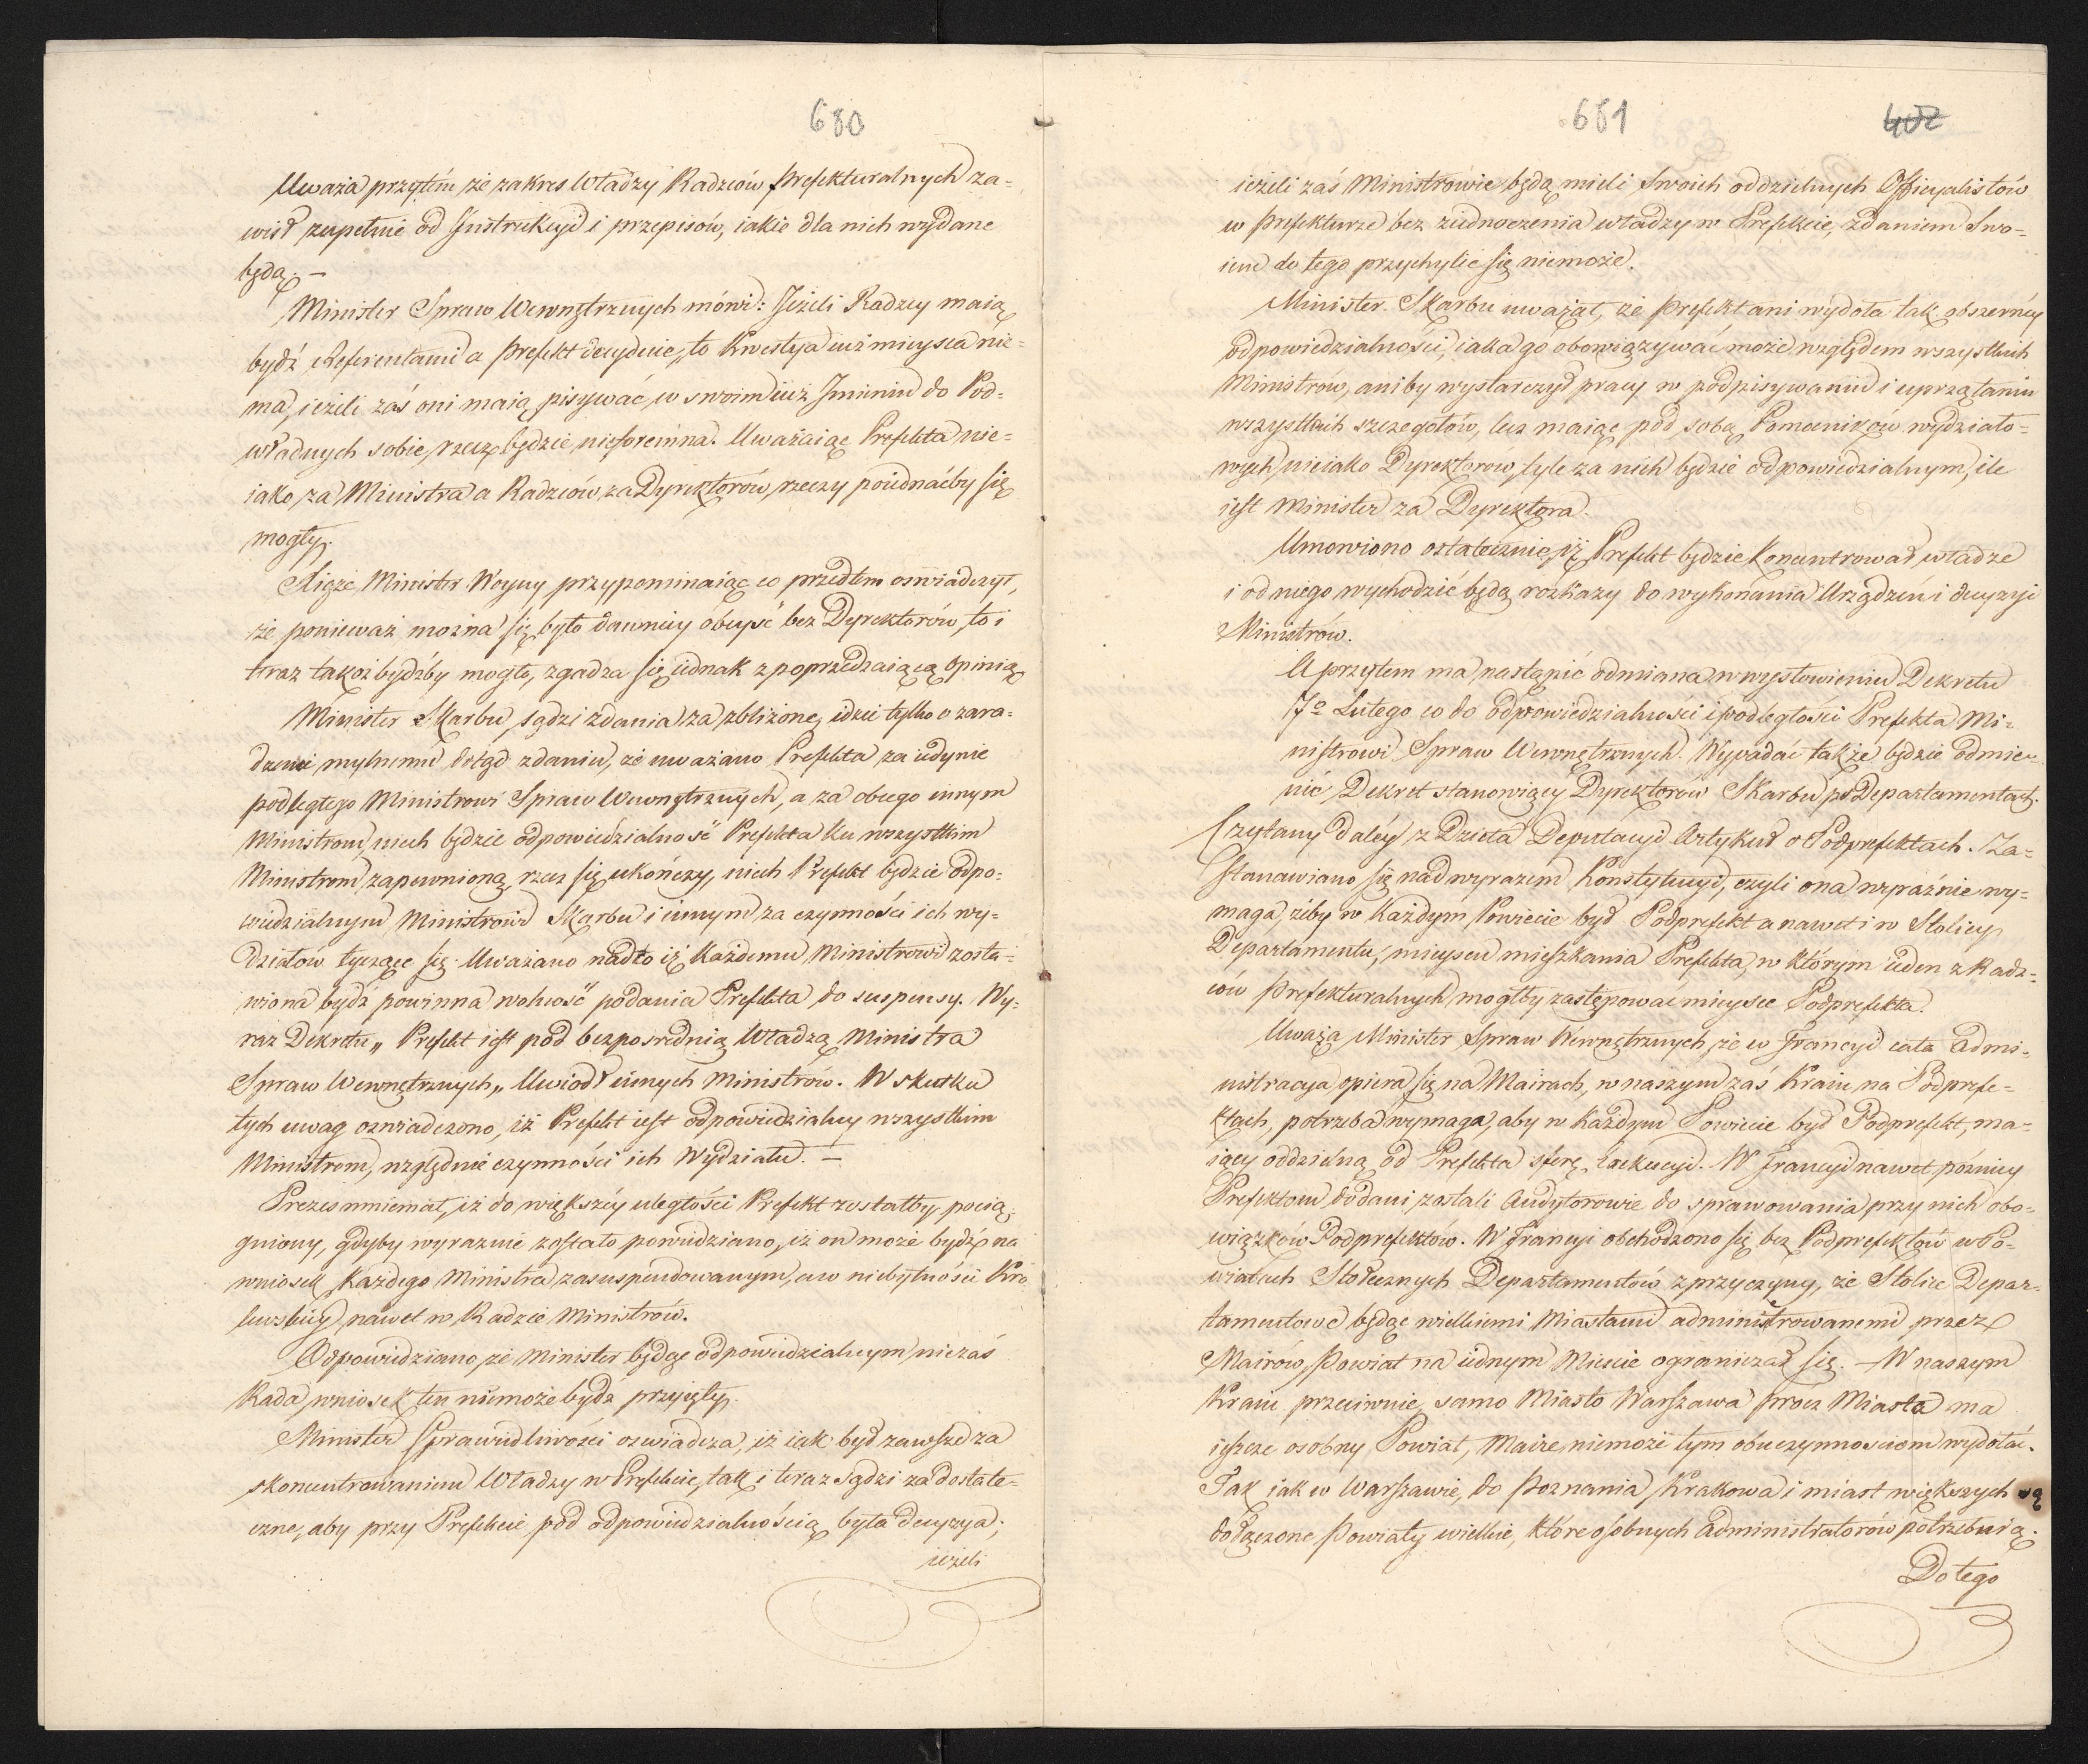 680
Uważa przytém że zakres Władzy Radzców Prefekturalnych za-
wisł zupełnie od Instrukcyi i przepisów, iakie dla nich wydane
będą. —
Minister Spraw Wewnętrznych mówi: Jeżeli Radzcy maią
bydź Referentami a Prefekt decyduie, to kwestya iuż mieysca nie-
ma, ieżeli zaś oni maią pisywać w swoim iuż Imieniu do Pod-
władnych sobie, rzecz będzie nieforemna. Uważaiąc Prefekta nie-
iako za Ministra a Radzców za Dyrektorów, rzeczy poiednaćby się
mogły.
Xiąże Minister Woyny przypominaiąc co przedtem oswiadczył,
że ponieważ można się było dawniey obeyść bez Dyrektorów, to i
teraz takożbydźby mogło, zgadza się iednak z poprzedzaiącą opinią
Minister Skarbu sądzi zdania za zbliżone, idzie tylko o zara-
dzenie mylnemu dotąd zdaniu, że uważano Prefekta za iedynie
podległego Ministrowi Spraw Wewnętrznych, a za obcego innym
Ministrom, niech będzie odpowiedzialność Prefekta ku wszystkim
Ministrom zapewnioną, rzecz się ukończy, niech Prefekt będzie odpo-
wiedzialnym Ministrowi Skarbu i innym za czynności ich wy-
działów tyczące się. Uważano nadto iż każdemu Ministrowi zosta-
wiona bydź powinna wolność podania Prefekta do suspensy. Wy-
raz Dekretu „ Prefekt iest pod bezposrednią Władzą Ministra
Spraw Wewnętrznych „ Uwiodł innych Ministrów. W skutku
tych uwag oświadczono, iż Prefekt iest odpowiedzialny wszystkim
Ministrom, względnie czynności ich Wydziału. —
Prezes mniemał, iż do większéy uległości Prefekt zostałby pocią-
gniony, gdyby wyraznie zostało powiedziano, iż on może bydź na
wniosek każdego Ministra zasuspendowanym, a w niebytności Kró-
lewskiey nawet w Radzie Ministrów.
Odpowiedziano, że Minister będąc odpowiedzialnym nie zaś
Rada, wniosek ten niemoże bydź przyięty.
Minister Sprawiedliwości oswiadcza, iż iak był zawsze za
skoncentrowaniem Władzy w Prefekcie, tak i teraz sądzi za dostate-
czne, aby przy Prefekcie pod odpowiedzialnością była decyzya;
ieżeli
681 402
ieżeli zaś Ministrowie będą mieli swoich oddzielnych Officyalistów
w Prefekturze bez ziednoczenia władzy w Prefekcie, zdaniem Swo-
iem do tego przychylić się niemoże.
Minister Skarbu uważał, że Prefekt ani wydoła tak obszernéy
odpowiedzialności, iaka go obowiązywać może względem wszystkich
Ministrów, ani by wystarczył pracy w podpisywaniu i uprzątaniu
wszystkich szczegołów, lecz maiąc pod sobą Pomocników wydziało-
wych, nieiako Dyrektorów, tyle za nich będzie odpowiedzialnym, ile
iest Minister za Dyrektora.
Umowiono ostatecznie, iż Prefekt będzie koncentrował władze
i od niego wychodzić będą rozkazy do wykonania Urządzeń i decyzyi
Ministrów.
A przytem ma nastąpić odmiana w wysłowieniu Dekretu
7º Lutego co do odpowiedzialności i podległości Prefekta Mi-
nistrowi Spraw Wewnętrznych. Wypadać także będzie odmie-
nić Dekret stanowiący Dyrektorów Skarbu po Departamentach.
Czytany daléy z Dzieła Deputacyi Artykuł o Podprefektach. Za-
stanawiano się nad wyrazem Konstytucyi, czyli ona wyraźnie wy-
maga, żeby w każdym Powiecie był Podprefekt a nawet i w Stolicy
Departamentu, mieyscu mieszkania Prefekta, w którym ieden z Radz-
ców Prefekturalnych mogłby zastępować mieysce Podprefekta.
Uważa Minister Spraw Wewnętrznych, że w Francyi cała Admi-
nistracya opiera się na Mairach, w naszym zaś Kraiu na Podprefe-
ktach, potrzeba wymaga, aby w każdym Powiecie był Podprefekt, ma-
iący oddzielną od Prefekta sferę Exekucyi. W Francyi nawet późniey
Prefektom dodani zostali Audytorowie do sprawowania przy nich obo-
wiązków Podprefektów. W Francyi obchodzono się bez Podprefektów w Po-
wiatach Stołecznych Departamentów z przyczyny, że Stolice Depar-
tamentowe będąc wielkiemi Miastami administrowanemi przez
Mairów, Powiat na iednym Miescie ograniczał się. — W naszym
Kraiu przeciwnie, samo Miasto Warszawa prócz Miasta ma
ieszcze osobny Powiat, Maire niemoże tym obu czynnosciom wydołać.
Tak iak w Warszawie, do Poznania, Krakowa i miast większych są
dołączone Powiaty wielkie, które osobnych Administratorów potrzebuią.
Do tego